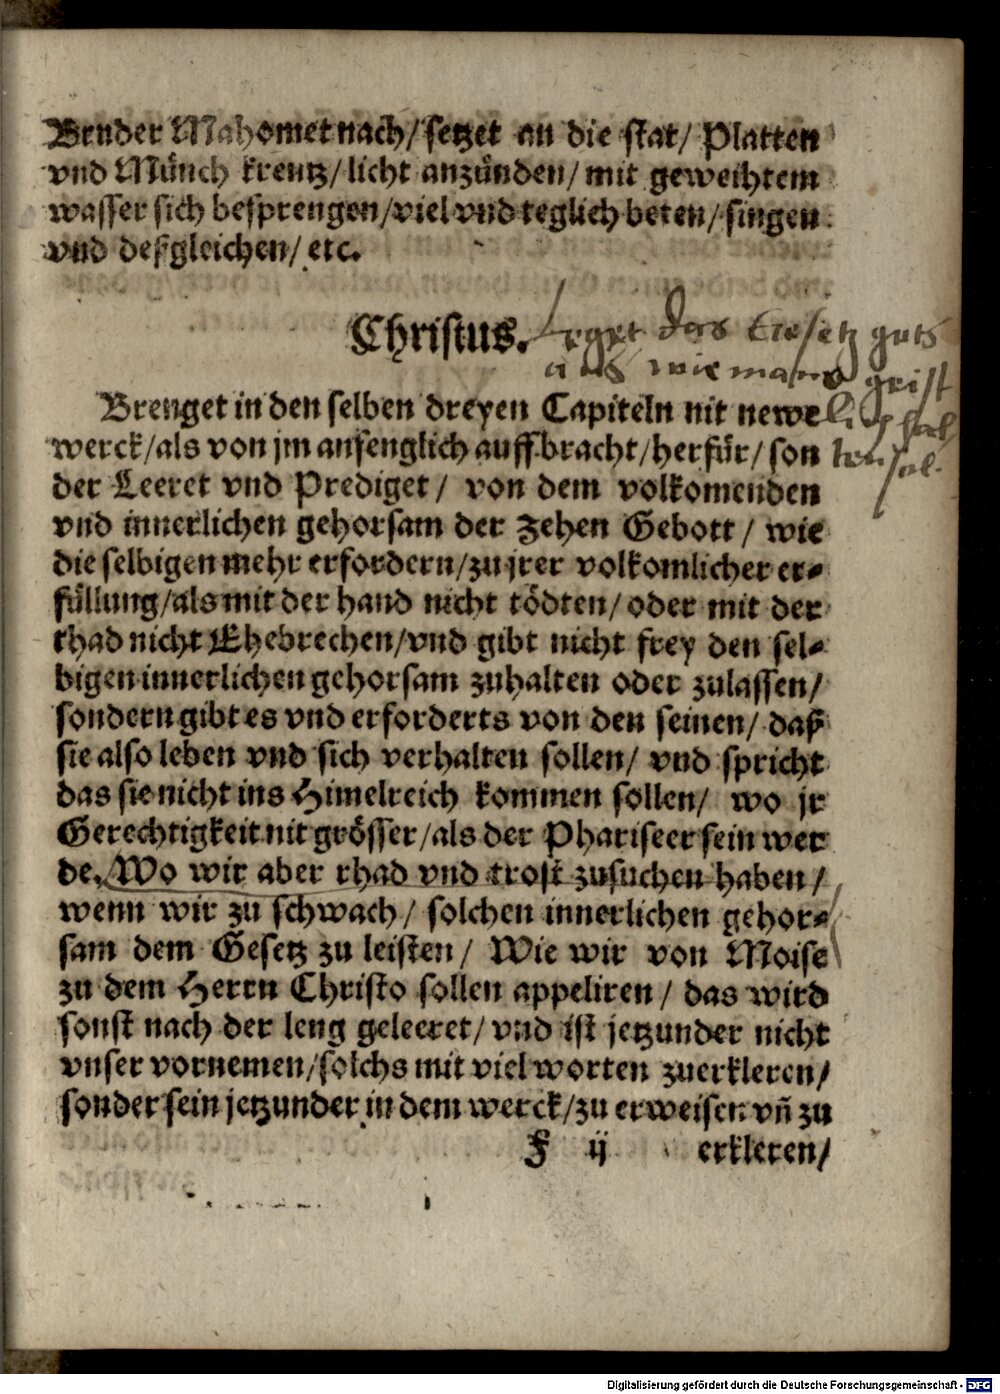 Bruder Mahomet nach/ setzet an die stat/ Platten
vnd Münch kreutz/ licht anzünden/ mit geweihtem
wasser sich besprengen/ viel vnd teglich beten/ singen
vnd deßgleichen/ etc.
Christus. Leget das Gesetz
aus wie mans geist
Brenget in den selben dreyen Capiteln nit newe
werck/ als von jm anfenglich auffbracht/ herfür/ son
der Leeret vnd Prediget/ von dem volkomenden
vnd innerlichen gehorsam der zehen Gebott/ wie
die selbigen mehr erfordern/ zu jrer volkomlicher er-
füllung/ als mit der hand nicht tödten/ oder mit der
thad nicht Ehebrechen/ vnd gibt nicht frey den sel-
bigen innerlichen gehorsam zuhalten oder zulassen/
sondern gibt es vnd erforderts von den seinen/ daß
sie also leben vnd sich verhalten sollen/ vnd spricht
das sie nicht ins Himelreich kommen sollen/ wo jr
Gerechtigkeit nit grösser/ als der Phariseer sein wer
de. Wo wir aber rhad vnd trost zusuchen haben/
wenn wir zu schwach/ solchen innerlichen gehor-
sam dem Gesetz zu leisten/ Wie wir von Moise
zu dem Herrn Christo sollen appeliren/ das wird
sonst nach der leng geleeret/ vnd ist jetzunder nicht
vnser vornemen/ solchs mit viel worten zuerkleren/
sonder sein jetzunder in dem werck/ zu erweisen vñ zu
F ij erkleren/
Digitalisierung gefördert durch die Deutsche Forschungsgemeinschaft - DFG